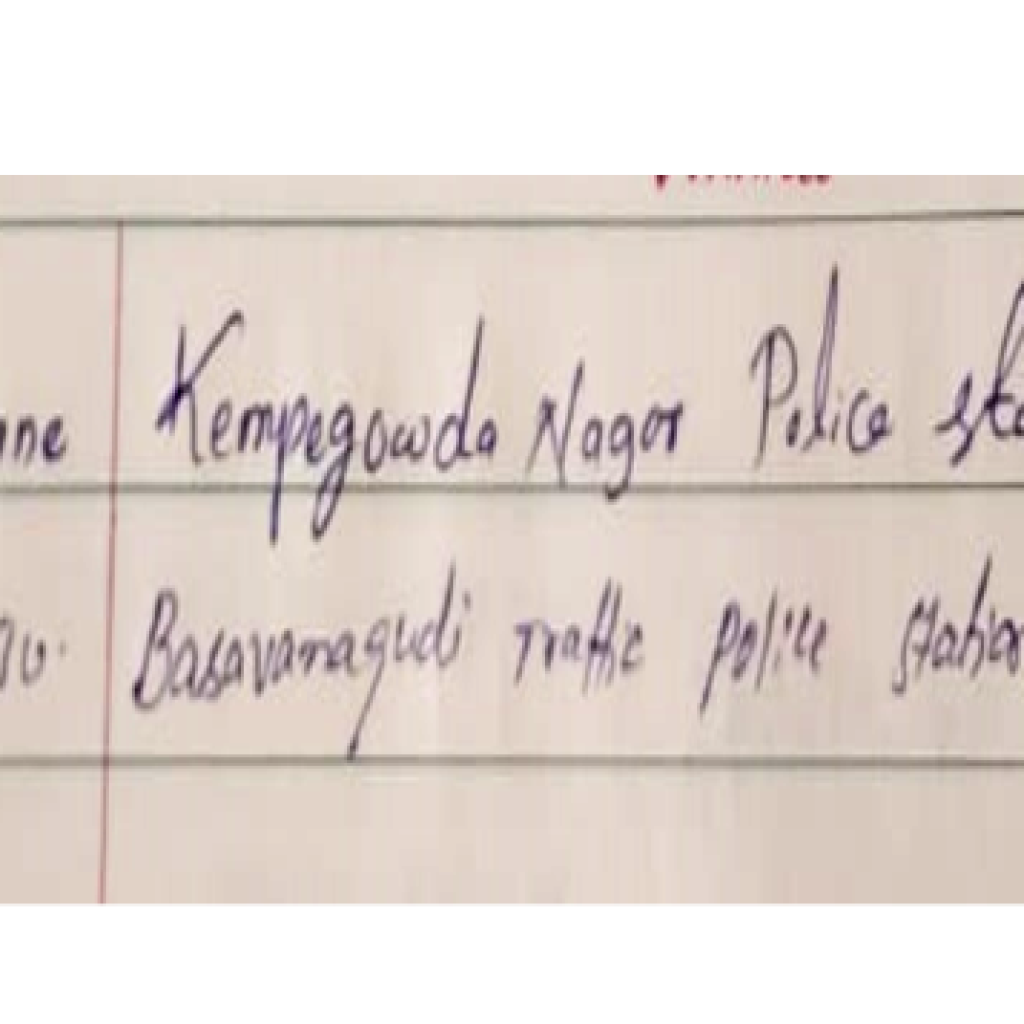 ne Kempegowda Nagar Police sta
Basavanagudi Traffic police station